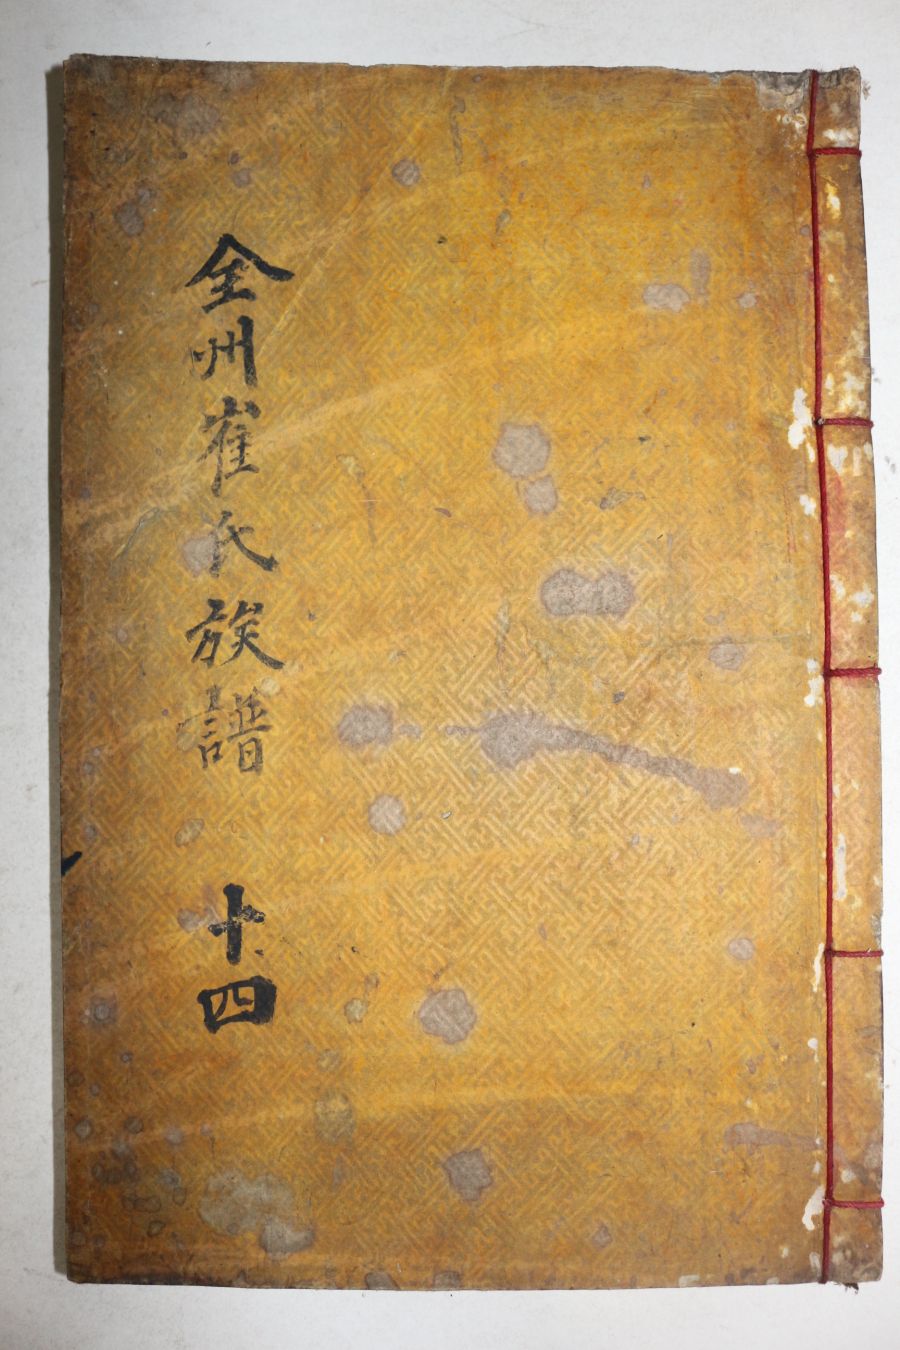 全州崔氏族譜 十四